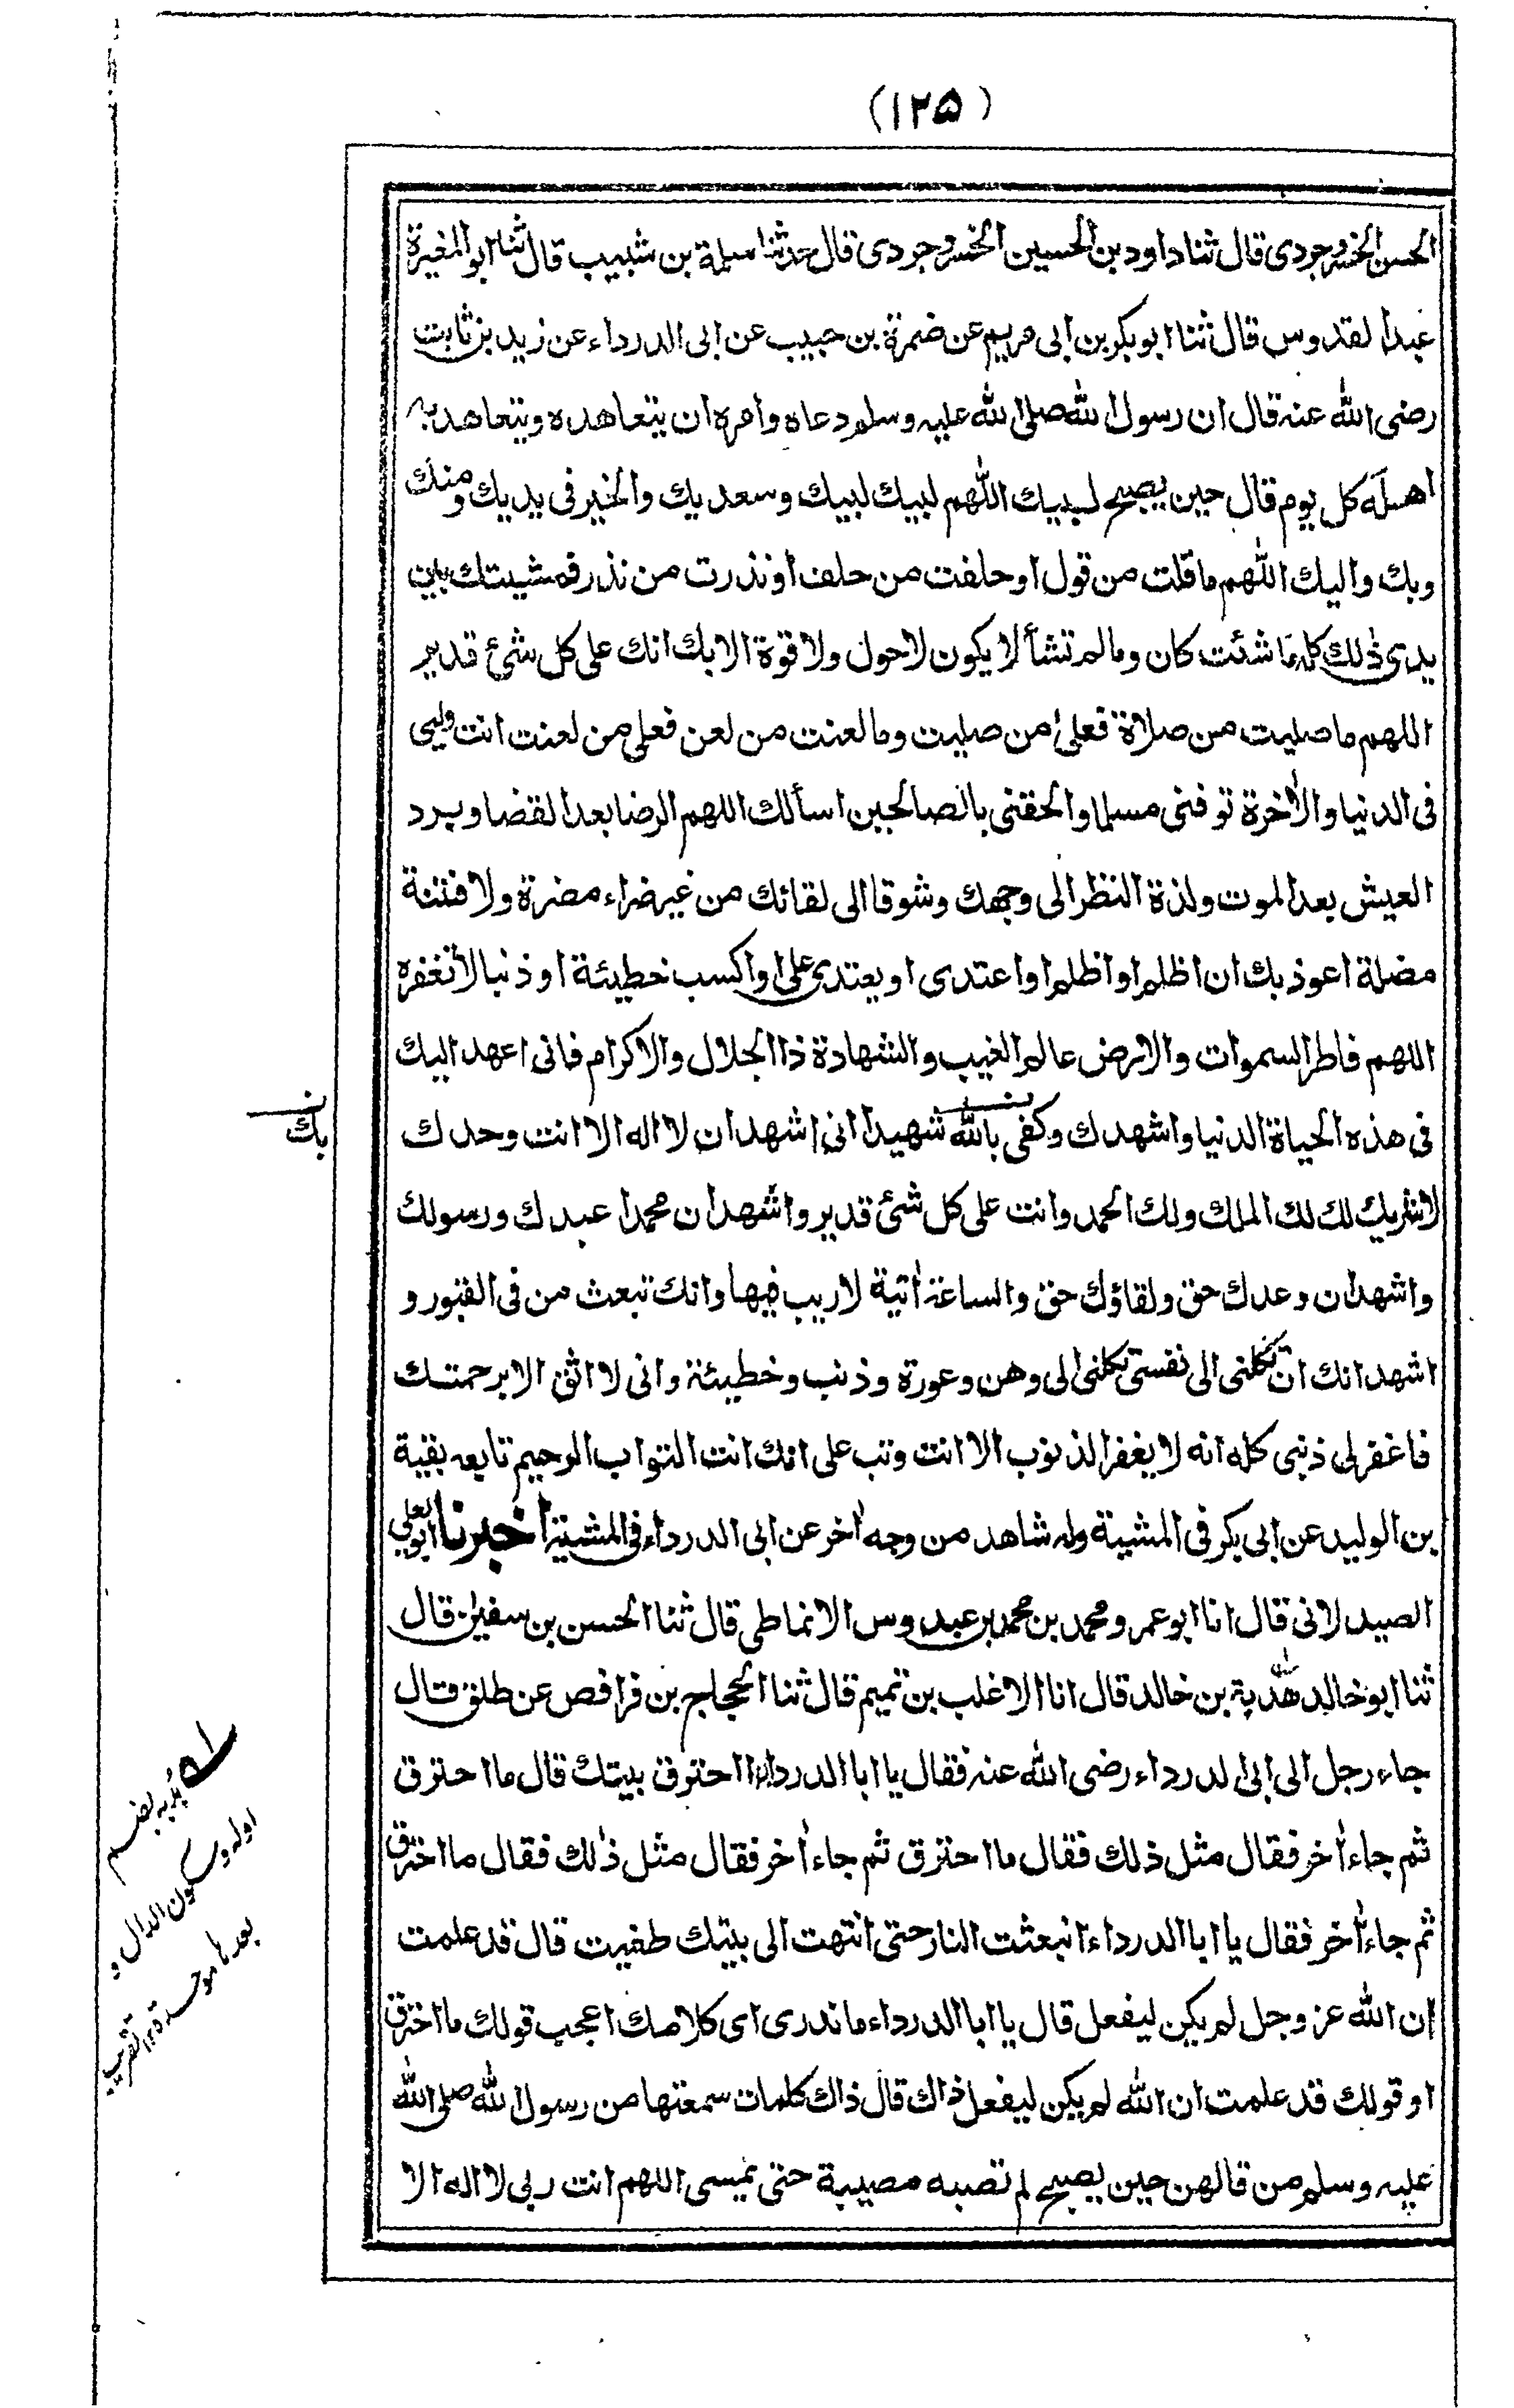 (١٢۵)
الحسن الخسروجردى قال ثنا داود بن الحسين الخسروجردى قال حدثنا سلمة بن شبيب قال ثنا ابو المغيرة
عبد القدوس قال ثنا ابو بكر بن ابى مريم عن ضمرة بن حبيب عن ابى الدرداء عن زيد بن ثابت
رضى الله عنه قال ان رسول الله صلى الله عليه وسلم دعاه وامره ان يتعاهده ويتعاهد به
اهله كل يوم قال حين يصبح لبيك اللهم لبيك لبيك وسعديك والخير فى يديك ومنك
وبك واليك اللهم ما قلت من قول او حلفت من حلف او نذرت من نذر فمشيتك بين
يدى ذلك كله ما شئت كان وما لم تشأ لا يكون لا حول ولا قوة الا بك انك على كل شئ قدير
اللهم ما صليت من صلاة فعلى من صليت وما لعنت من لعن فعلى من لعنت انت وليى
فى الدنيا والاخرة توفنى مسلما والحقنى بالصالحين اسألك اللهم الرضا بعد القضا وبرد
العيش بعد الموت ولذة النظر الى وجهك وشوقا الى لقائك من غير ضراء مضرة ولا فتنة
مضلة اعوذ بك ان اظلم او اظلم او اعتدى او يعتدى على او اكسب خطيئة او ذنبا لا تغفره
اللهم فاطر السموات والارض عالم الغيب والشهادة ذا الجلال والاكرام فانى اعهد اليك
فى هذه الحياة الدنيا واشهدك وكفى بالله شهيدا انى اشهد ان لا اله الا انت وحدك
بك
لا شريك لك لك الملك ولك الحمد وانت على كل شئ قدير واشهد ان محمدا عبدك ورسولك
واشهد ان وعدك حق ولقاؤك حق والساعة اتية لا ريب فيها وانك تبعث من فى القبور و
اشهد انك ان تكلنى الى نفسى تكلنى الى وهن وعورة وذنب وخطيئة وانى لا اثق الا برحمتك
فاغفر لى ذنبى كله انه لا يغفر الذنوب الا انت وتب على انك انت التواب الرحيم تابعه بقية
بن الوليد عن ابى بكر فى المشية وله شاهد من وجه اخر عن ابى الدرداء فى المشية اخبرنا ابو يعلى
الصيدلانى قال انا ابو عمر ومحمد بن محمد بن عبدوس الانماطى قال ثنا الحسن بن سفين قال
ثنا ابو خالد هدبة بن خالد قال انا الاغلب بن تميم قال ثنا الحجاج بن فرافص عن طلق قال
جاء رجل الى ابى الدرداء رضى الله عنه فقال يا ابا الدرداء احترق بيتك قال ما احترق
ثم جاء اخر فقال مثل ذلك فقال ما احترق ثم جاء اخر فقال مثل ذلك فقال ما احترق
ثم جاء اخر فقال يا ابا الدرداء انبعثت النار حتى انتهت الى بيتك طفيت قال قد علمت
ان الله عز وجل لم يكن ليفعل قال يا ابا الدرداء ما ندرى اى كلامك اعجب قولك ما احترق
او قولك قد علمت ان الله لم يكن ليفعل ذاك قال ذاك كلمات سمعتها من رسول الله صلى الله
عليه وسلم من قالهن حين يصبح لم تصبه مصيبة حتى يمسى اللهم انت ربى لا اله الا
هدبه بضم
اوله و
سكون الدال و
بعدها موحدة ١٢ تقريب